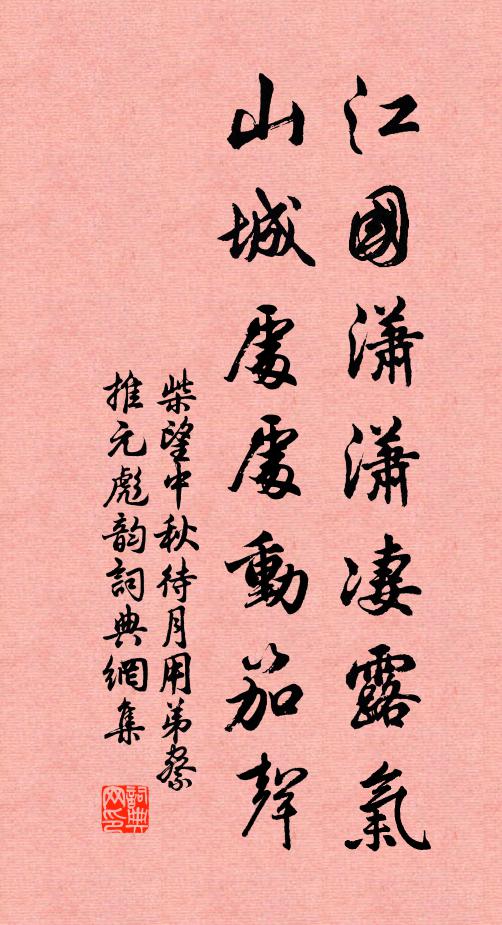 江國瀟瀟凄露氣
山城處處動笳聲
柴望中秋待月用弟察
推元彪韵詞典網集
詞典网印